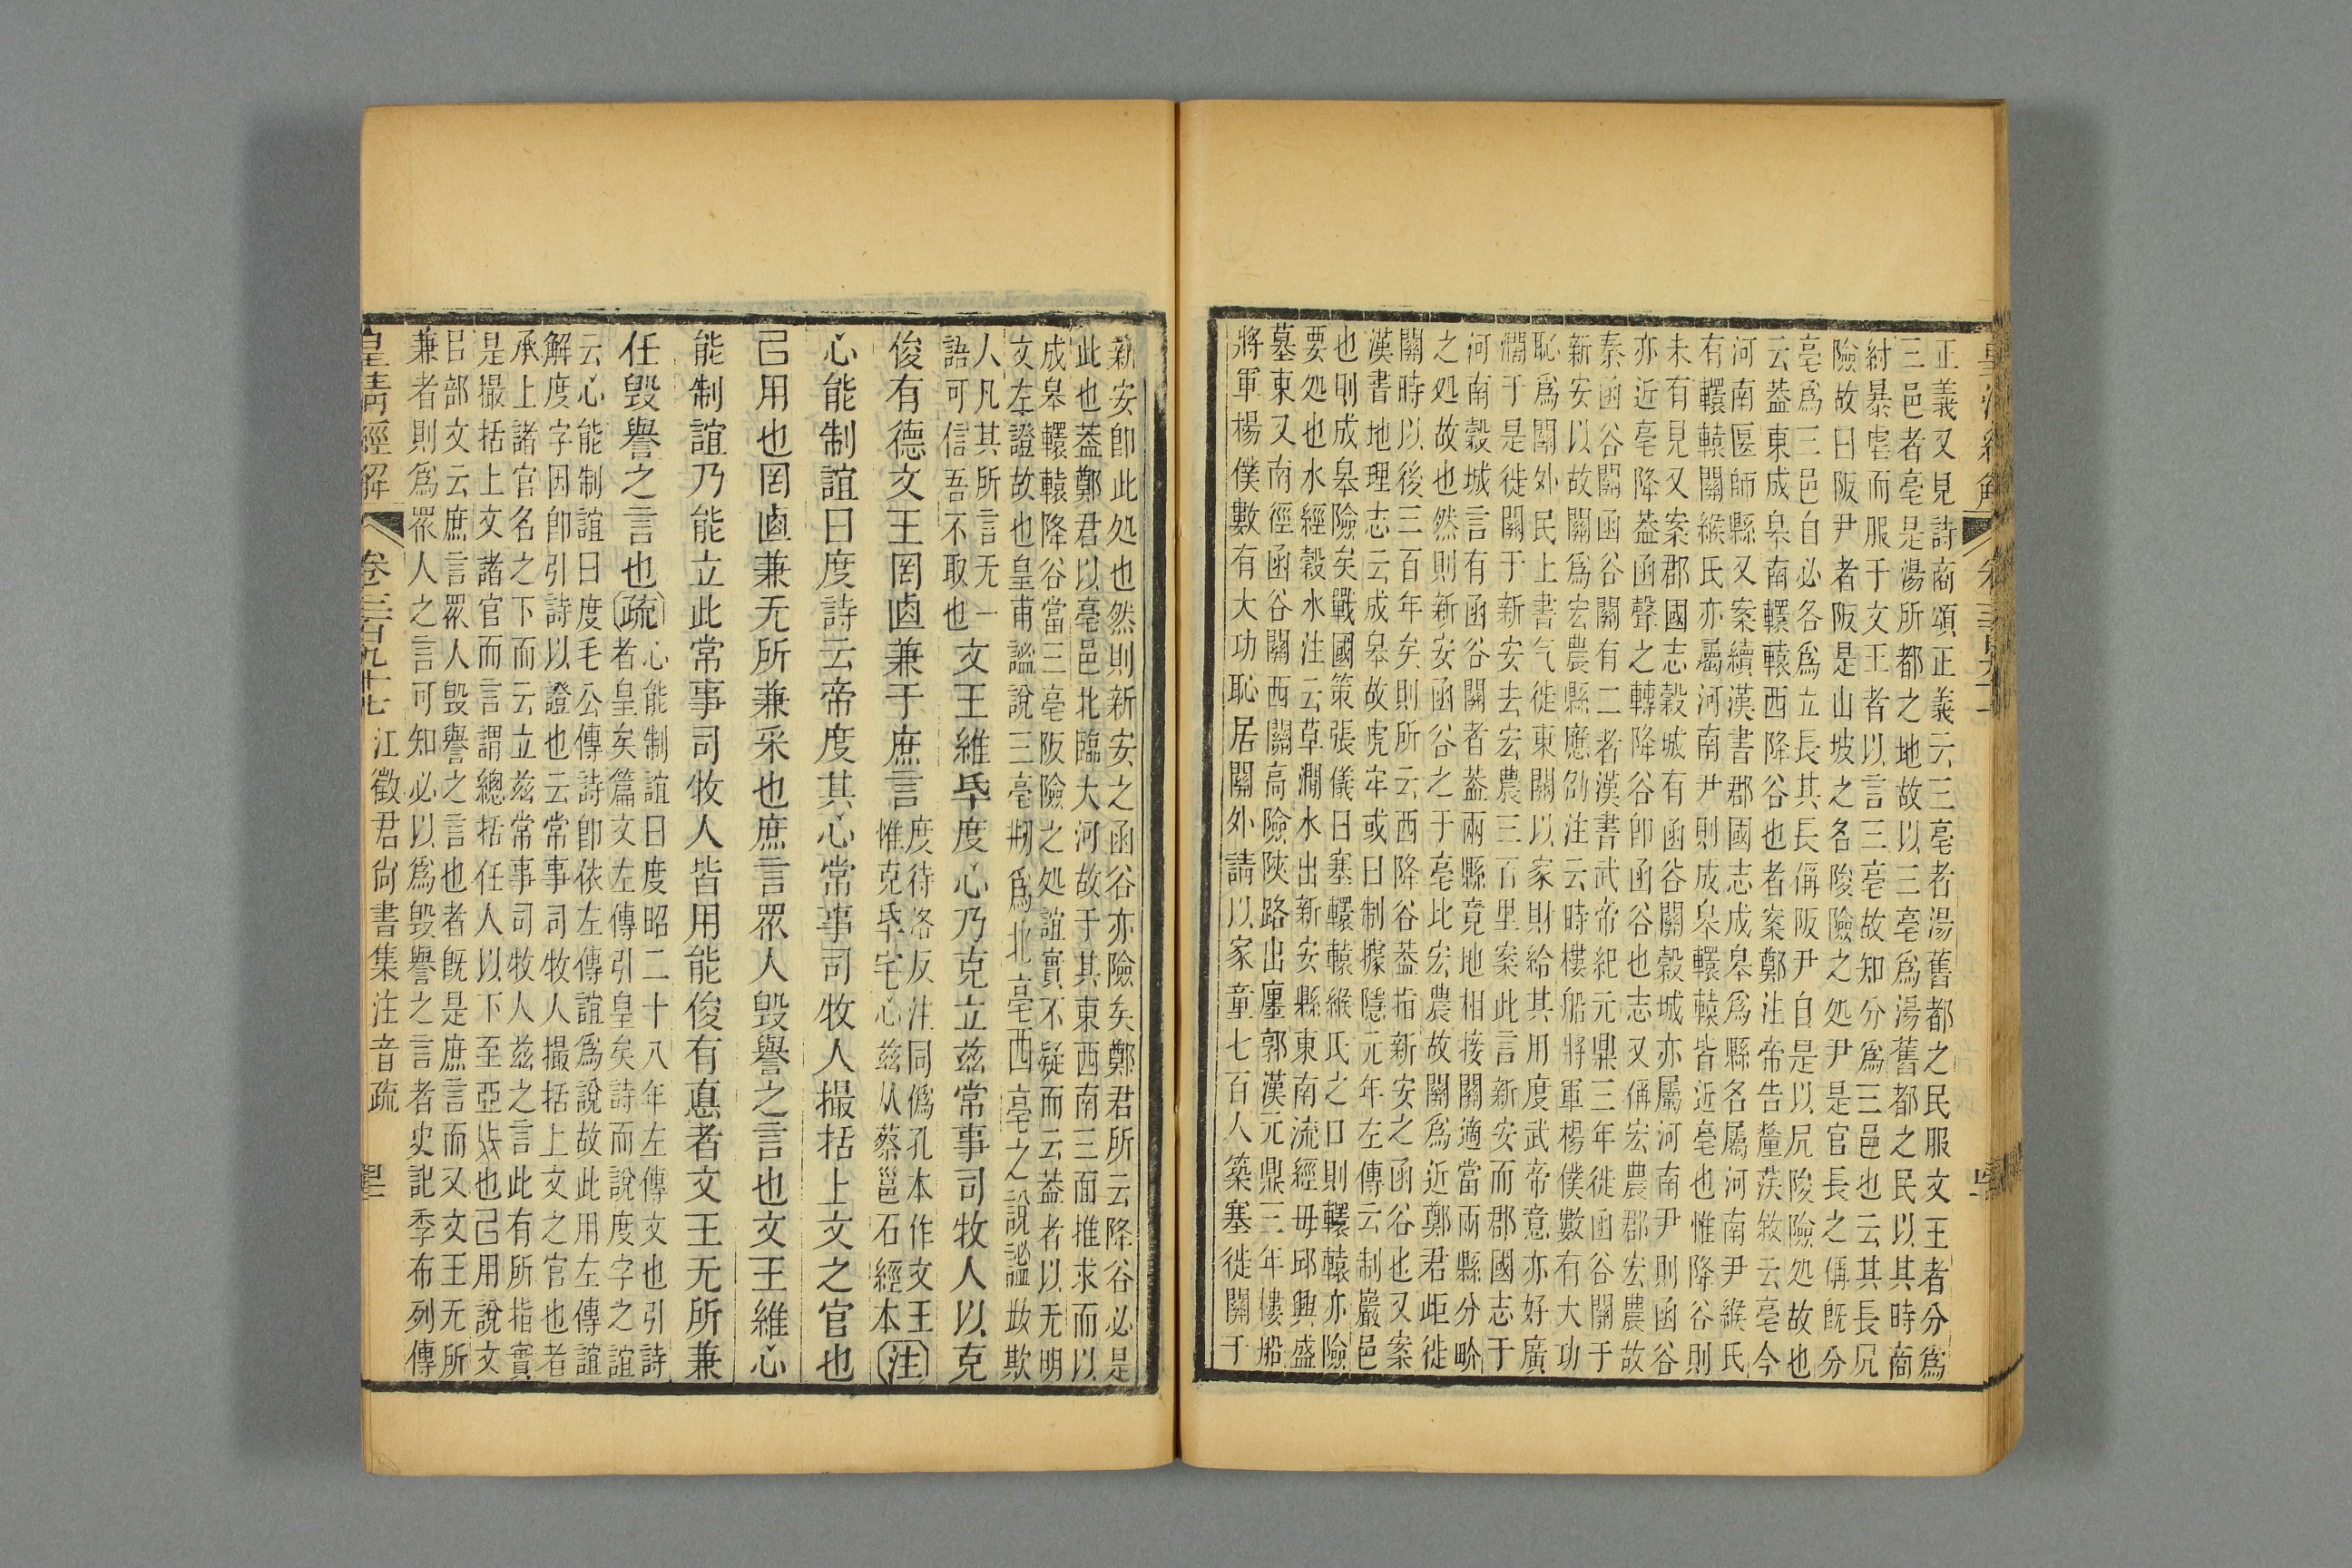 正義又見詩商頌正義云三亳者湯舊都之民服文王者分爲
三邑者亳是湯所都之地故以三亳爲湯舊都之民以其時商
紂暴虐而服于文王者以言三亳故知分爲三邑也云其長凥
險故曰阪尹者阪是山坡之名陖險之処尹是官長之偁旣分
亳爲三邑自必各爲立長其長偁阪尹自是以凥陖險処故也
云葢東成皋南轘轅西降谷也者案鄭注帝告釐茨敘云亳今
河南匽師縣又案續漢書郡國志成皋爲縣名屬河南尹緱氏
有轘轅關緱氏亦屬河南尹則成皋轘轅皆近亳也惟降谷則
未有見又案郡國志穀城有函谷關穀城亦屬河南尹則函谷
亦近亳降葢函聲之轉降谷卽函谷也志又偁宏農郡宏農故
秦函谷關函谷關有二者漢書武帝紀元鼎三年徙函谷關于
新安以故關爲宏農縣應劭注云時樓船將軍楊僕數有大功
恥爲關外民上書气徙東關以家財給其用度武帝意亦好廣
濶于是徙關于新安去宏農三百里案此言新安而郡國志于
河南穀城言有函谷關者葢兩縣竟地相接關適當兩縣分畍
之処故也然則新安函谷之于亳比宏農故關爲近鄭君歫徙
關時以後三百年矣則所云西降谷葢指新安之函谷也又案
漢書地理志云成皋故虎牢或曰制據隱元年左傳云制巖邑
也則成皋險矣戰國策張儀曰塞轘轅緱氏之口則轘轅亦險
要処也水經穀水注云草澗水出新安縣東南流經毋邱興盛
墓東又南徑函谷關西關高險陜路出廛郭漢元鼎三年樓船
將軍楊僕數有大功恥居關外請以家童七百人築塞徙關于
新安卽此処也然則新安之函谷亦險矣鄭君所云降谷必是
此也葢鄭君以亳邑北臨大河故于其東西南三面推求而以
成皋轘轅降谷當三亳阪險之処誼實不疑而云葢者以无明
文左證故也皇甫謐說三亳刱爲北亳西亳之說謐𧧻㱿欺
人凡其所言无一
語可信吾不取也
文王維𠂹度心乃克立兹常事司牧人以克
俊有德文王罔𠧟兼于庶言
度待洛反注同僞孔本作文王
惟克𠂹宅心兹从蔡邕石經本
注
心能制誼曰度詩云帝度其心常事司牧人撮括上文之官也
己用也罔𠧟兼无所兼采也庶言眾人毀譽之言也文王維心
能制誼乃能立此常事司牧人皆用能俊有悳者文王无所兼
任毀譽之言也
疏
心能制誼曰度昭二十八年左傳文也引詩
者皇矣篇文左傳引皇矣詩而說度字之誼
云心能制誼曰度毛公傳詩卽依左傳誼爲說故此用左傳誼
解度字因卽引詩以證也云常事司牧人撮括上文之官也者
承上諸官名之下而云立兹常事司牧人兹之言此有所指實
是撮括上文諸官而言謂總括任人以下至亞也己用說文
㠯部文云庶言眾人毀譽之言也者旣是庶言而又文王无所
兼者則爲眾人之言可知必以爲毀譽之言者史記季布列傳
皇淸經解
卷三百九十七
江徵君尙書集注音疏